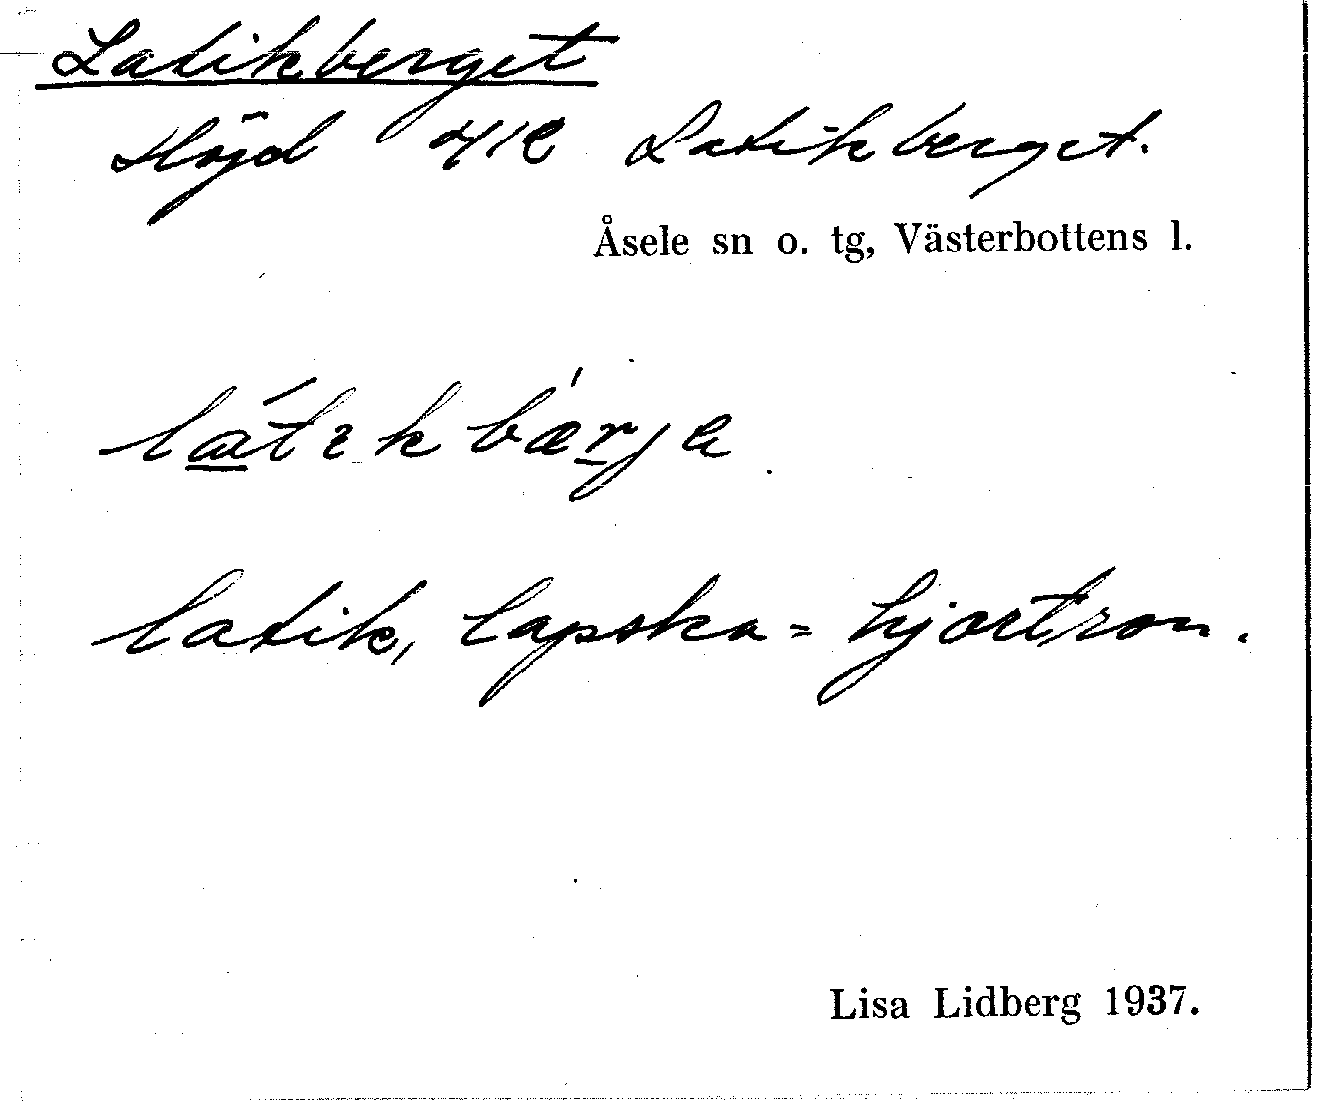 Latikberget
Höjd 412 Latikberget.
Åsele sn o. tg, Västerbottens l.
latik, lapska = hjortron.
Lisa Lidberg 1937.